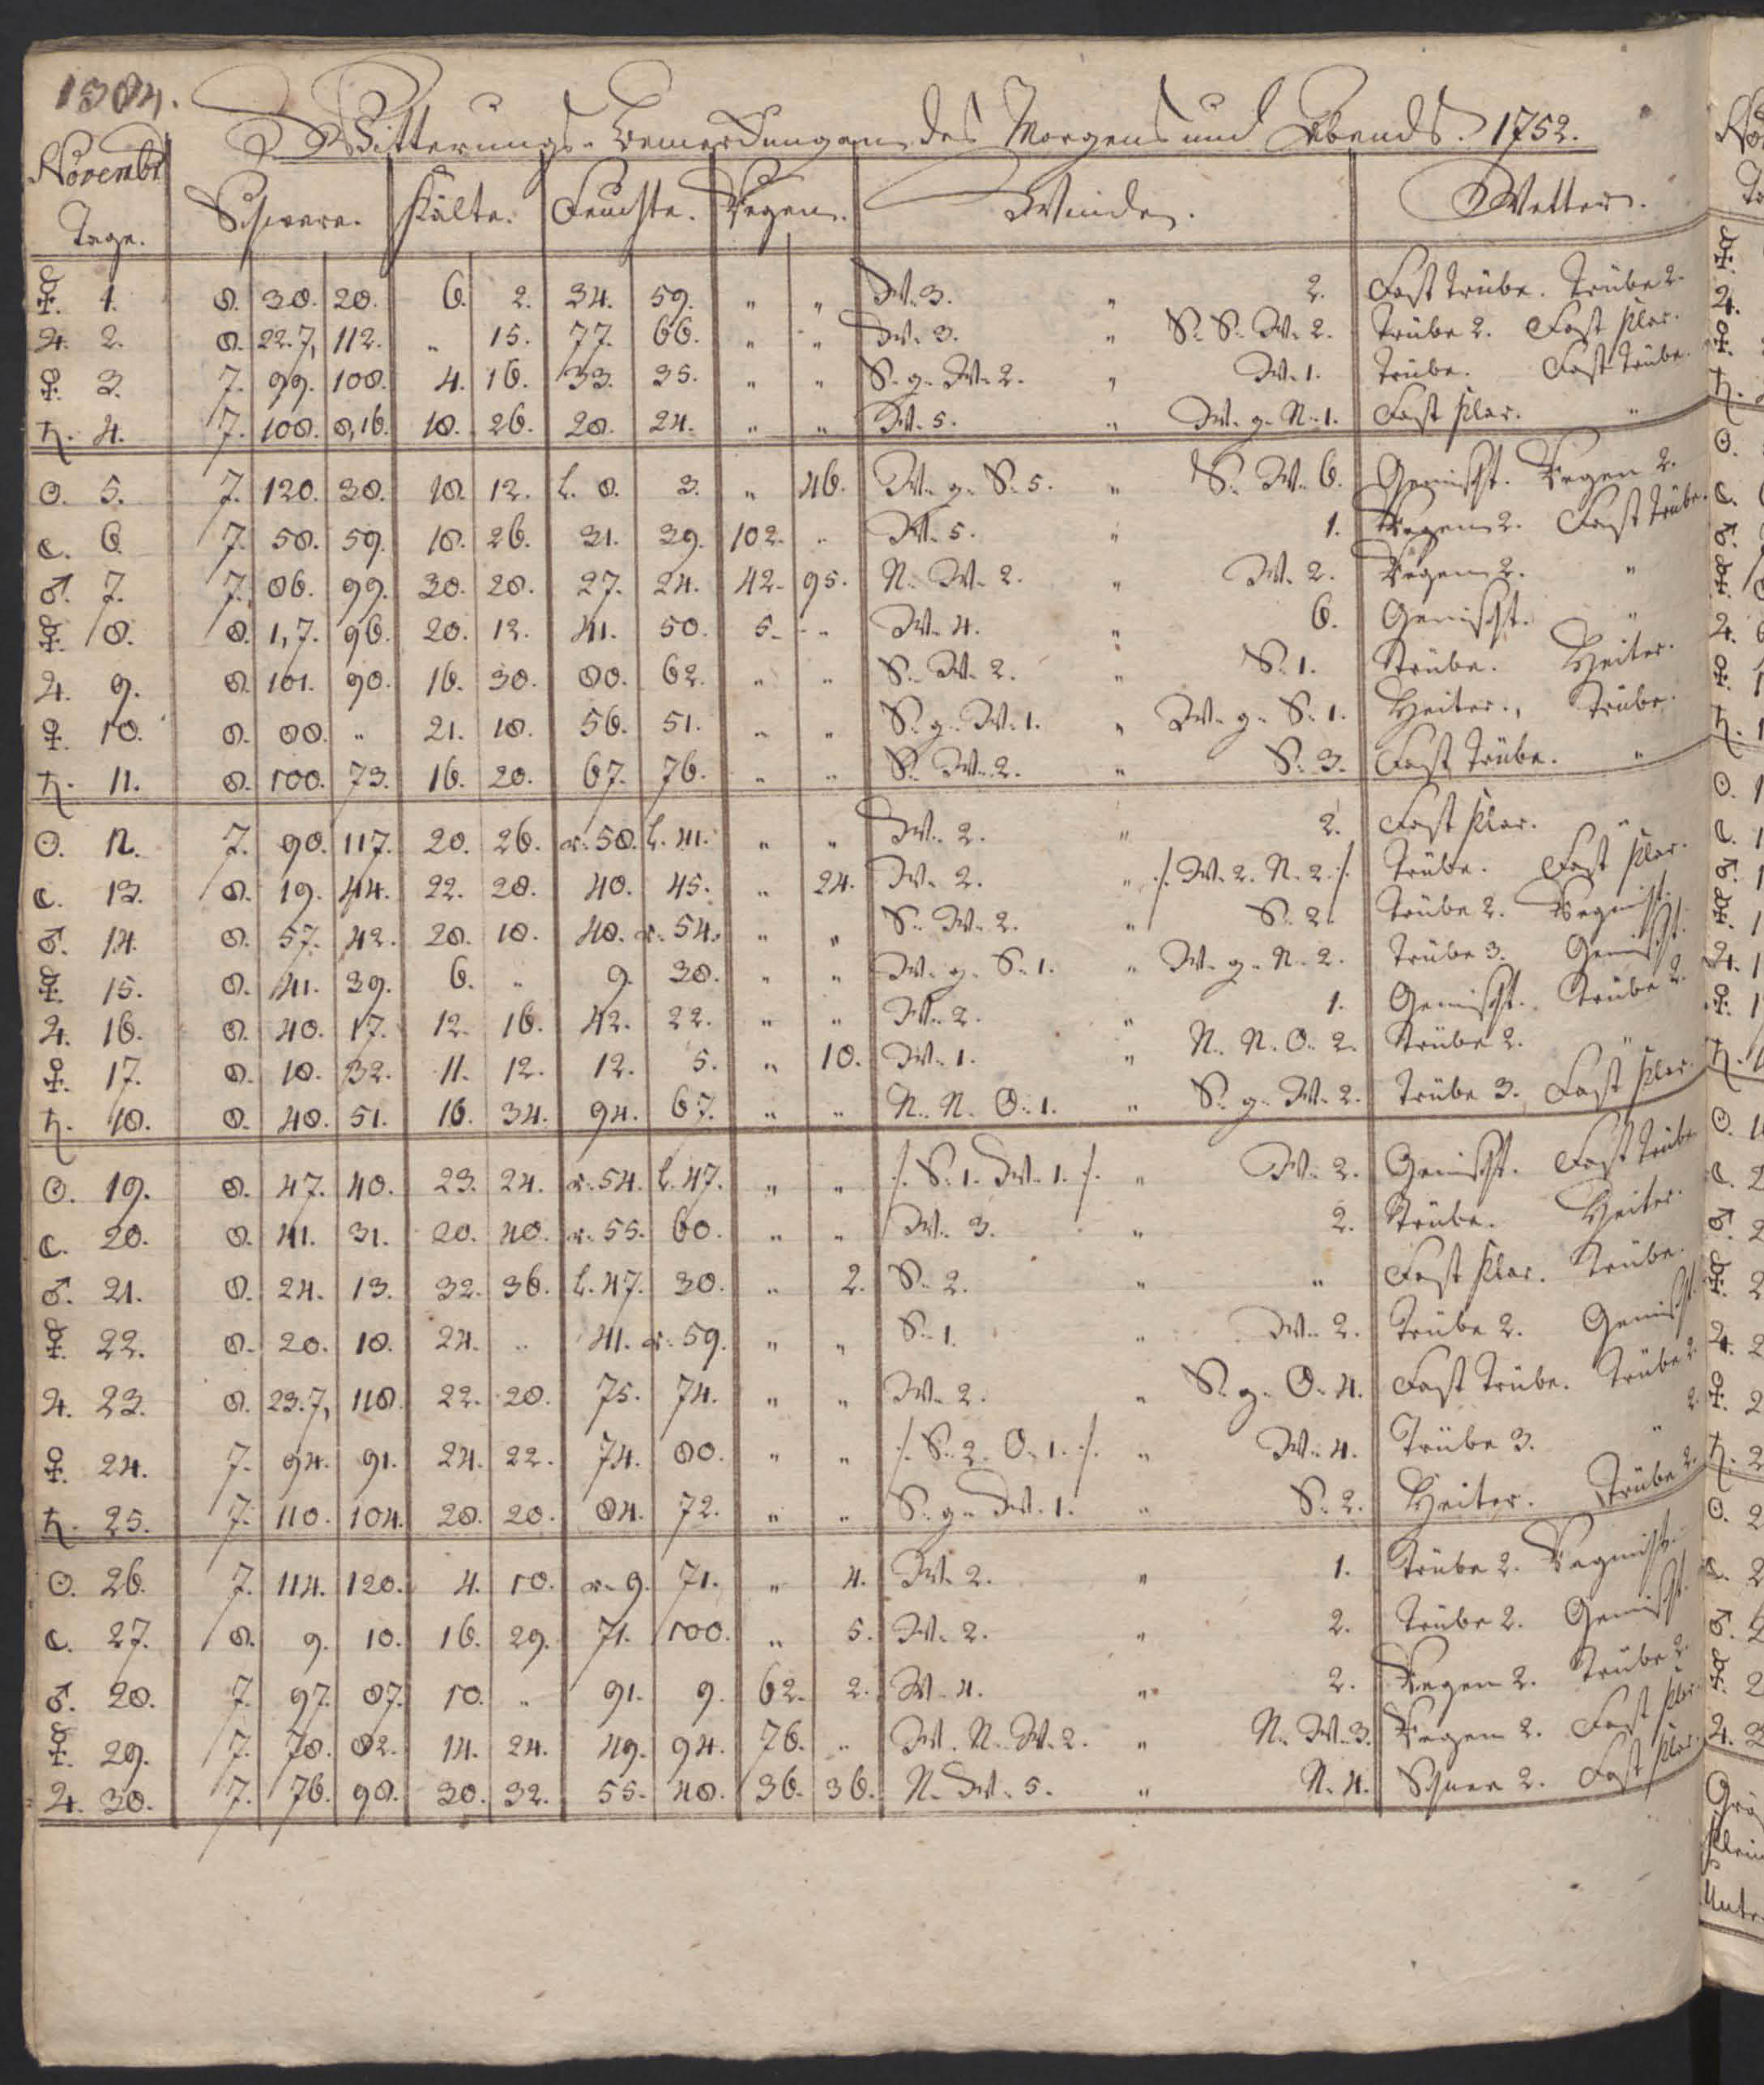 1384.
Witterungs-Bemerkungen des Morgens und Abends. 1752.
Novembr.
Tage. Schwere. Kälte. Feuchte. Regen. Winde. Wetter.
☿. 1. 8. 38. 28. 6. 2. 34. 59. " " W. 3. " 2. Fast trübe. Trübe 2.
♃. 2. 8. 22. 7, 112. " 15. 77. 66. " " W. 3. " S. S. W. 2. Trübe 2. Fast klar.
♀. 3. 7. 99. 108. 4. 16. 33. 35. " " S. g. W. 2. " W. 1. Trübe. Fast trübe.
♄. 4. 7. 108. 8, 16. 18. 26. 28. 24. " " W. 5. " W. g. N. 1. Fast klar. "
☉. 5. 7. 120. 38. 18. 12. l. 8. 3. " 46. W. g. S. 5. " S. W. 6. Gemischt. Regen 2.
☾. 6. 7. 58. 59. 18. 26. 31. 39. 102. " W. 5. " 1. Regen 2. Fast trübe.
♂. 7. 7. 86. 99. 30. 28. 27. 24. 42. 95. N. W. 2. " W. 2. Regen 2. "
☿. 8. 8. 1, 7. 96. 20. 12. 41. 50. 5. " W. 4. " 6. Gemischt. "
♃. 9. 8. 101. 90. 16. 30. 80. 62. " " S. W. 2. " S. 1. Trübe. Heiter.
♀. 10. 8. 88. " 21. 18. 56. 51. " " S. g. W. 1. " W. g. S. 1. Heiter. Trübe.
♄. 11. 8. 100. 73. 16. 20. 67. 76. " " S. W. 2. " S. 3. Fast trübe. "
☉. 12. 7. 90. 117. 20. 26. r. 58. l. 41. " " W. 2. " 2. Fast klar. "
☾. 13. 8. 19. 44. 22. 28. 40. 45. " 24. W. 2. " ./. W. 2. N. 2 ./. Trübe. Fast klar.
♂. 14. 8. 57. 42. 28. 18. 40. r. 54. " " S. W. 2. " S. 2. Trübe 2. Regnicht.
☿. 15. 8. 41. 39. 6. " 9. 38. " " W. g. S. 1. " W. g. N. 2. Trübe 3. Gemischt.
♃. 16. 8. 40. 17. 12. 16. 42. 22. " " W. 2. " 1. Gemischt. Trübe 2.
♀. 17. 8. 18. 32. 11. 12. 12. 5. " 10. W. 1. " N. N. O. 2. Trübe 2. "
♄. 18. 8. 48. 51. 16. 34. 94. 67. " " N. N. O. 1. " S. g. W. 2. Trübe 3. Fast klar.
☉. 19. 8. 47. 40. 23. 24. r. 54. l. 47. " " ./. S. 1. W. 1. ./. " W. 2. Gemischt. Fast trübe
☾. 20. 8. 41. 31. 20. 40. r. 55. 60. " " W. 3. " 2. Trübe. Heiter.
♂. 21. 8. 24. 13. 32. 36. l. 47. 30. " 2. S. 2. " " Fast klar. Trübe.
☿. 22. 8. 20. 18. 24. " 41. r. 59. " " S. 1. " W. 2. Trübe 2. Gemischt.
♃. 23. 8. 23. 7, 118. 22. 20. 75. 74. " " W. 2. " S. g. O. 4. Fast trübe. Trübe 2.
♀. 24. 7. 94. 91. 24. 22. 74. 80. " " ./. S. 2. O. 1. ./. " W. 4. Trübe 3. " 2.
♄. 25. 7. 110. 104. 28. 20. 84. 72. " " S. g. W. 1. " S. 2. Heiter. Trübe 2.
☉. 26. 7. 114. 120. 4. 10. r. 9. 71. " 4. W. 2. " 1. Trübe 2. Regnicht.
☾. 27. 8. 9. 10. 16. 29. 71. 100. " 5. W. 2. " 2. Trübe 2. Gemischt.
♂. 28. 7. 97. 87. 10. " 91. 9. 62. 2. W. 4. " 2. Regen 2. Trübe 2.
☿. 29. 7. 78. 82. 14. 24. 49. 94. 76. " W. N. W. 2. " N. W. 3. Regen 2. Fast klar.
♃. 30. 7. 76. 98. 30. 32. 55. 48. 36. 36. N. W. 5. " N. 4. Schnee 2. Fast klar.